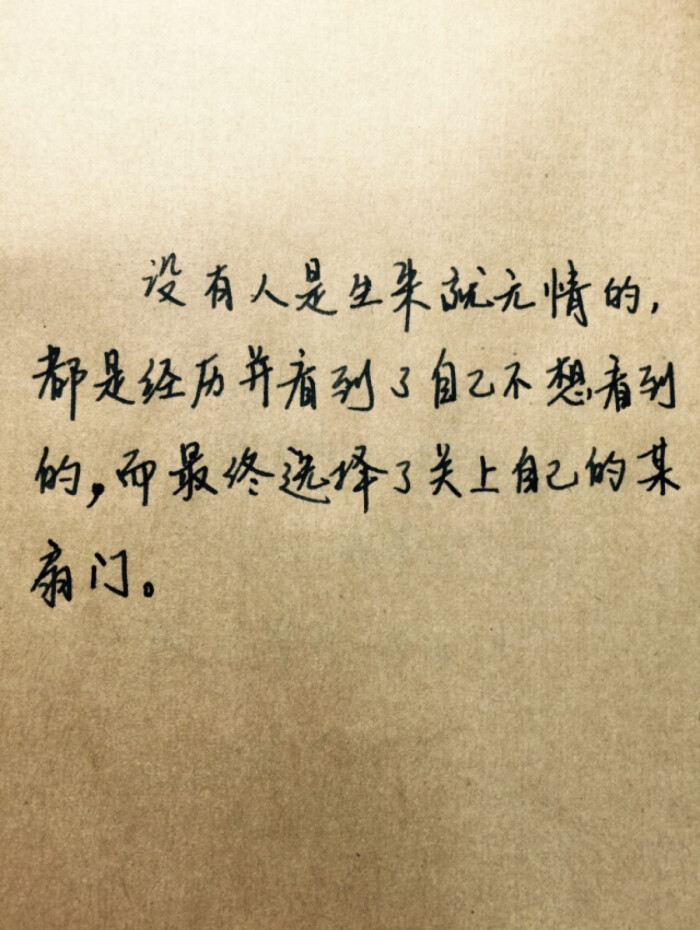 没有人是生来就无情的,
都是经历并看到了自己不想看到
的,而最终选择了关上自己的某
扇门。